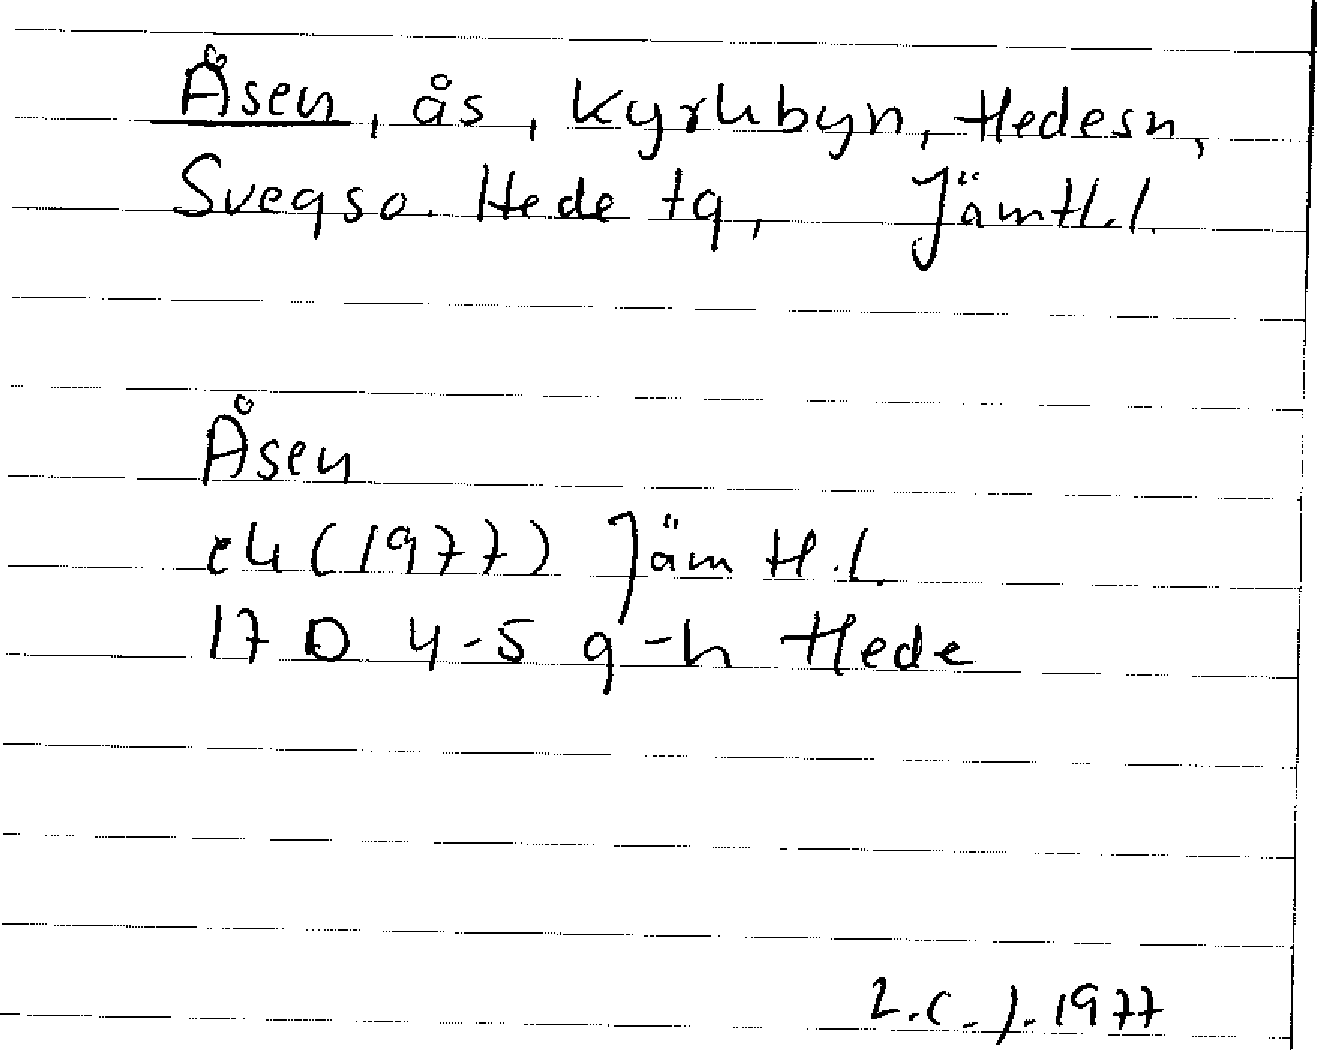 Åsen, ås, Kyrkbyn, Hedesn,
Svegso. Hede tg, Jämtl.l.
Åsen
ek (1977) Jämtl.l.
17 D 4-5 g-h Hede
L.C.J. 1977